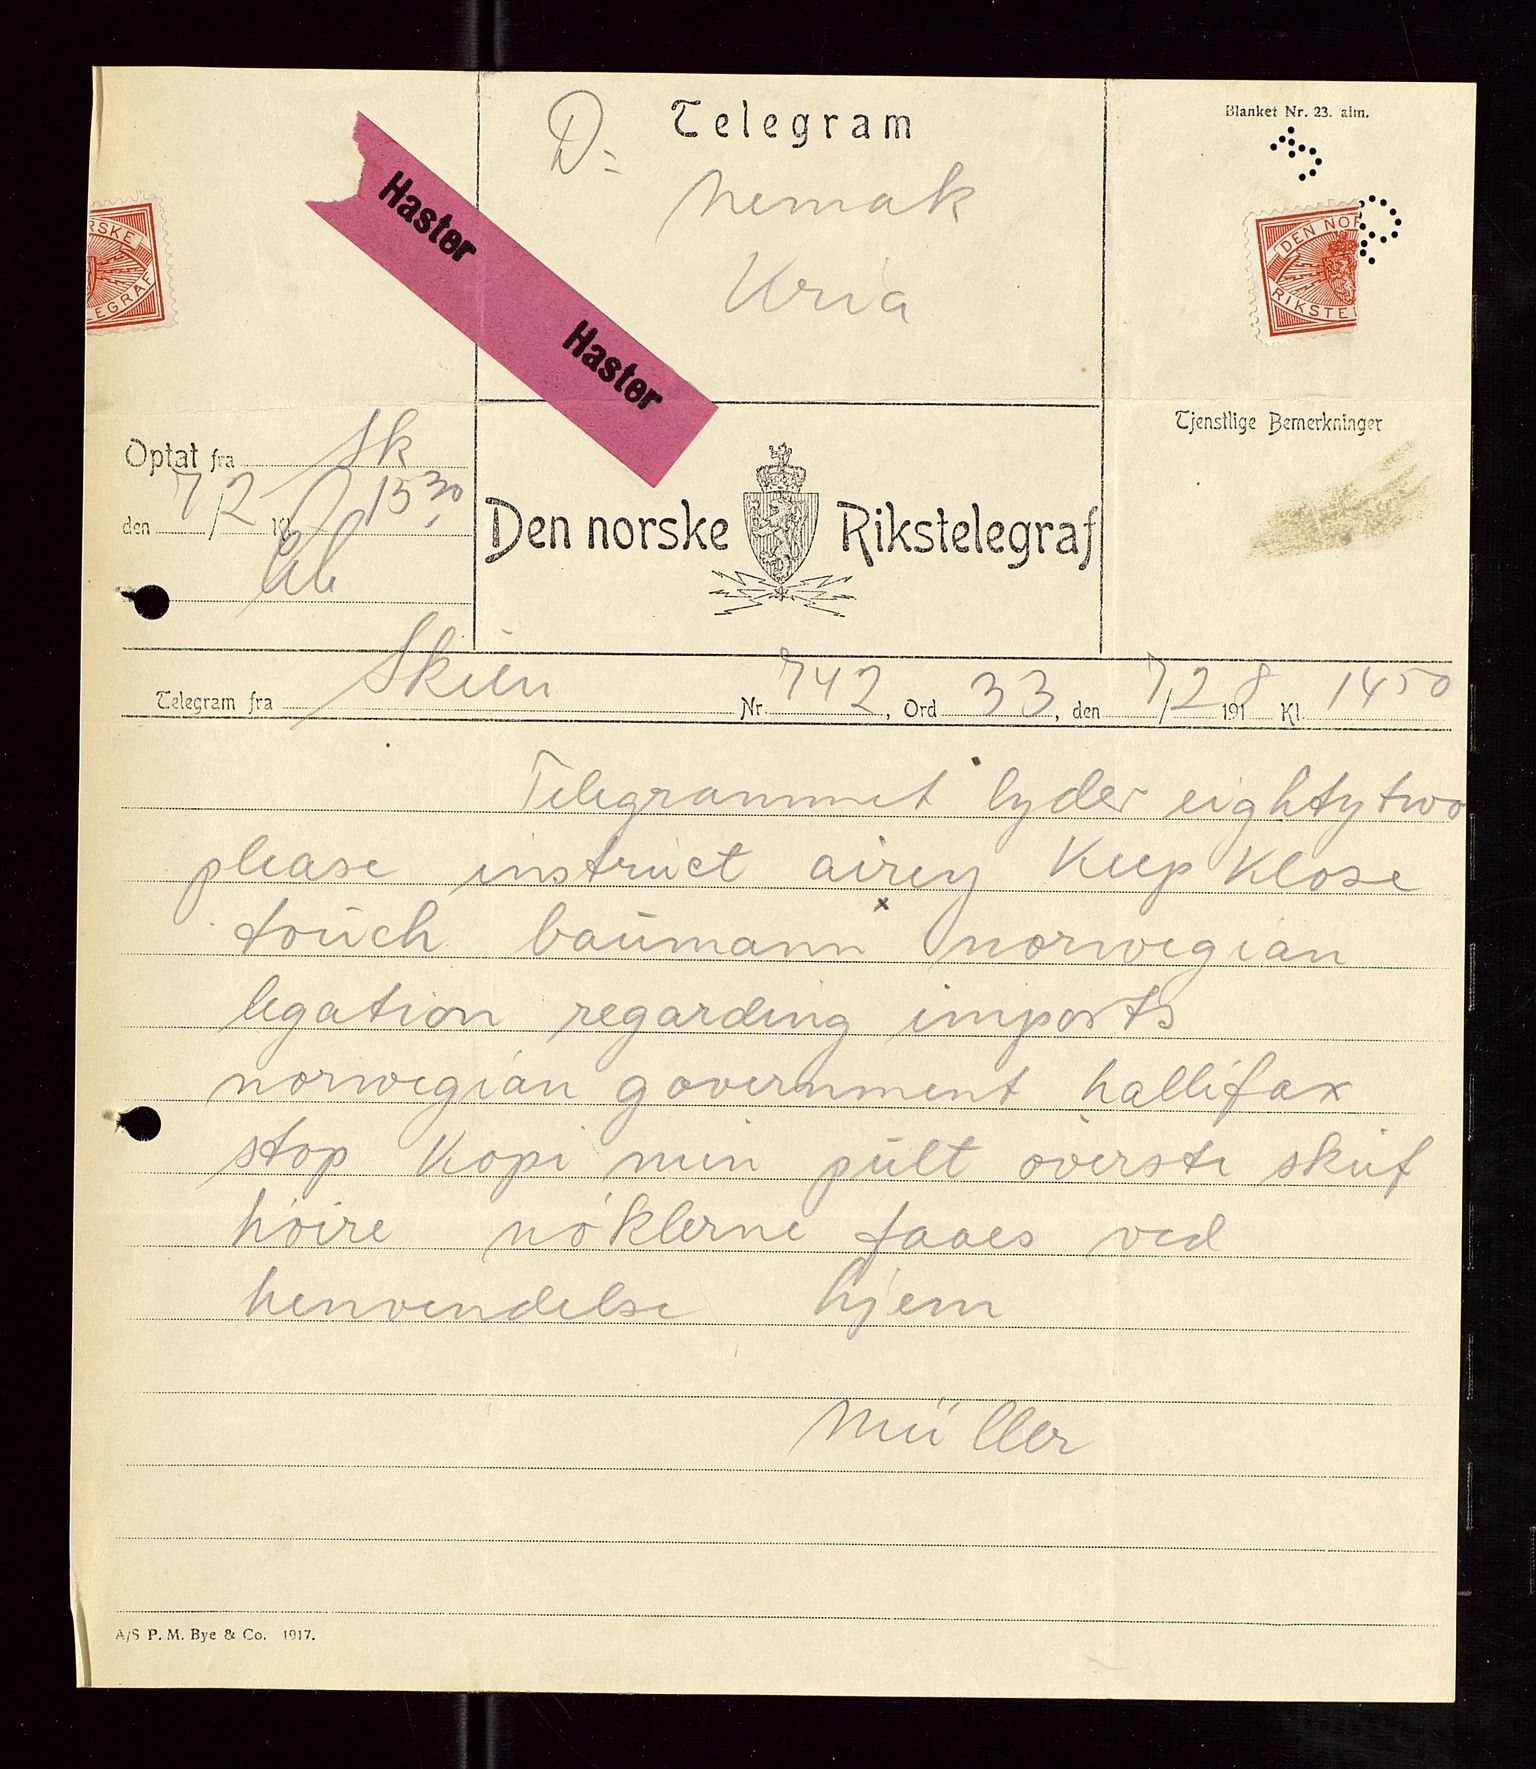 Telegram
D=
nemak
Kria
Blanket Nr. 23. alm.
Haster
Haster
RSKE
LEGRAF
DEN NOR
RIKSTEL
Tjenstlige Bemerkninger
Optat fra Sk
den 7/2 15 30
Den norske Rikstelegraf
Telegram fra Skien Nr. 742, Ord 33, den 7/2 1918 Kl. 1450
Telegrammet lyder eightytwo
please instruct airey Keep Klose
touch baumann norwegian
legation regarding imports
norwegian government hallifax
stop Kopi min pult överste skuf
höire nöklerne faaes ved
henvendelse hjem
Müller
A/S P. M. Bye & Co. 1917.